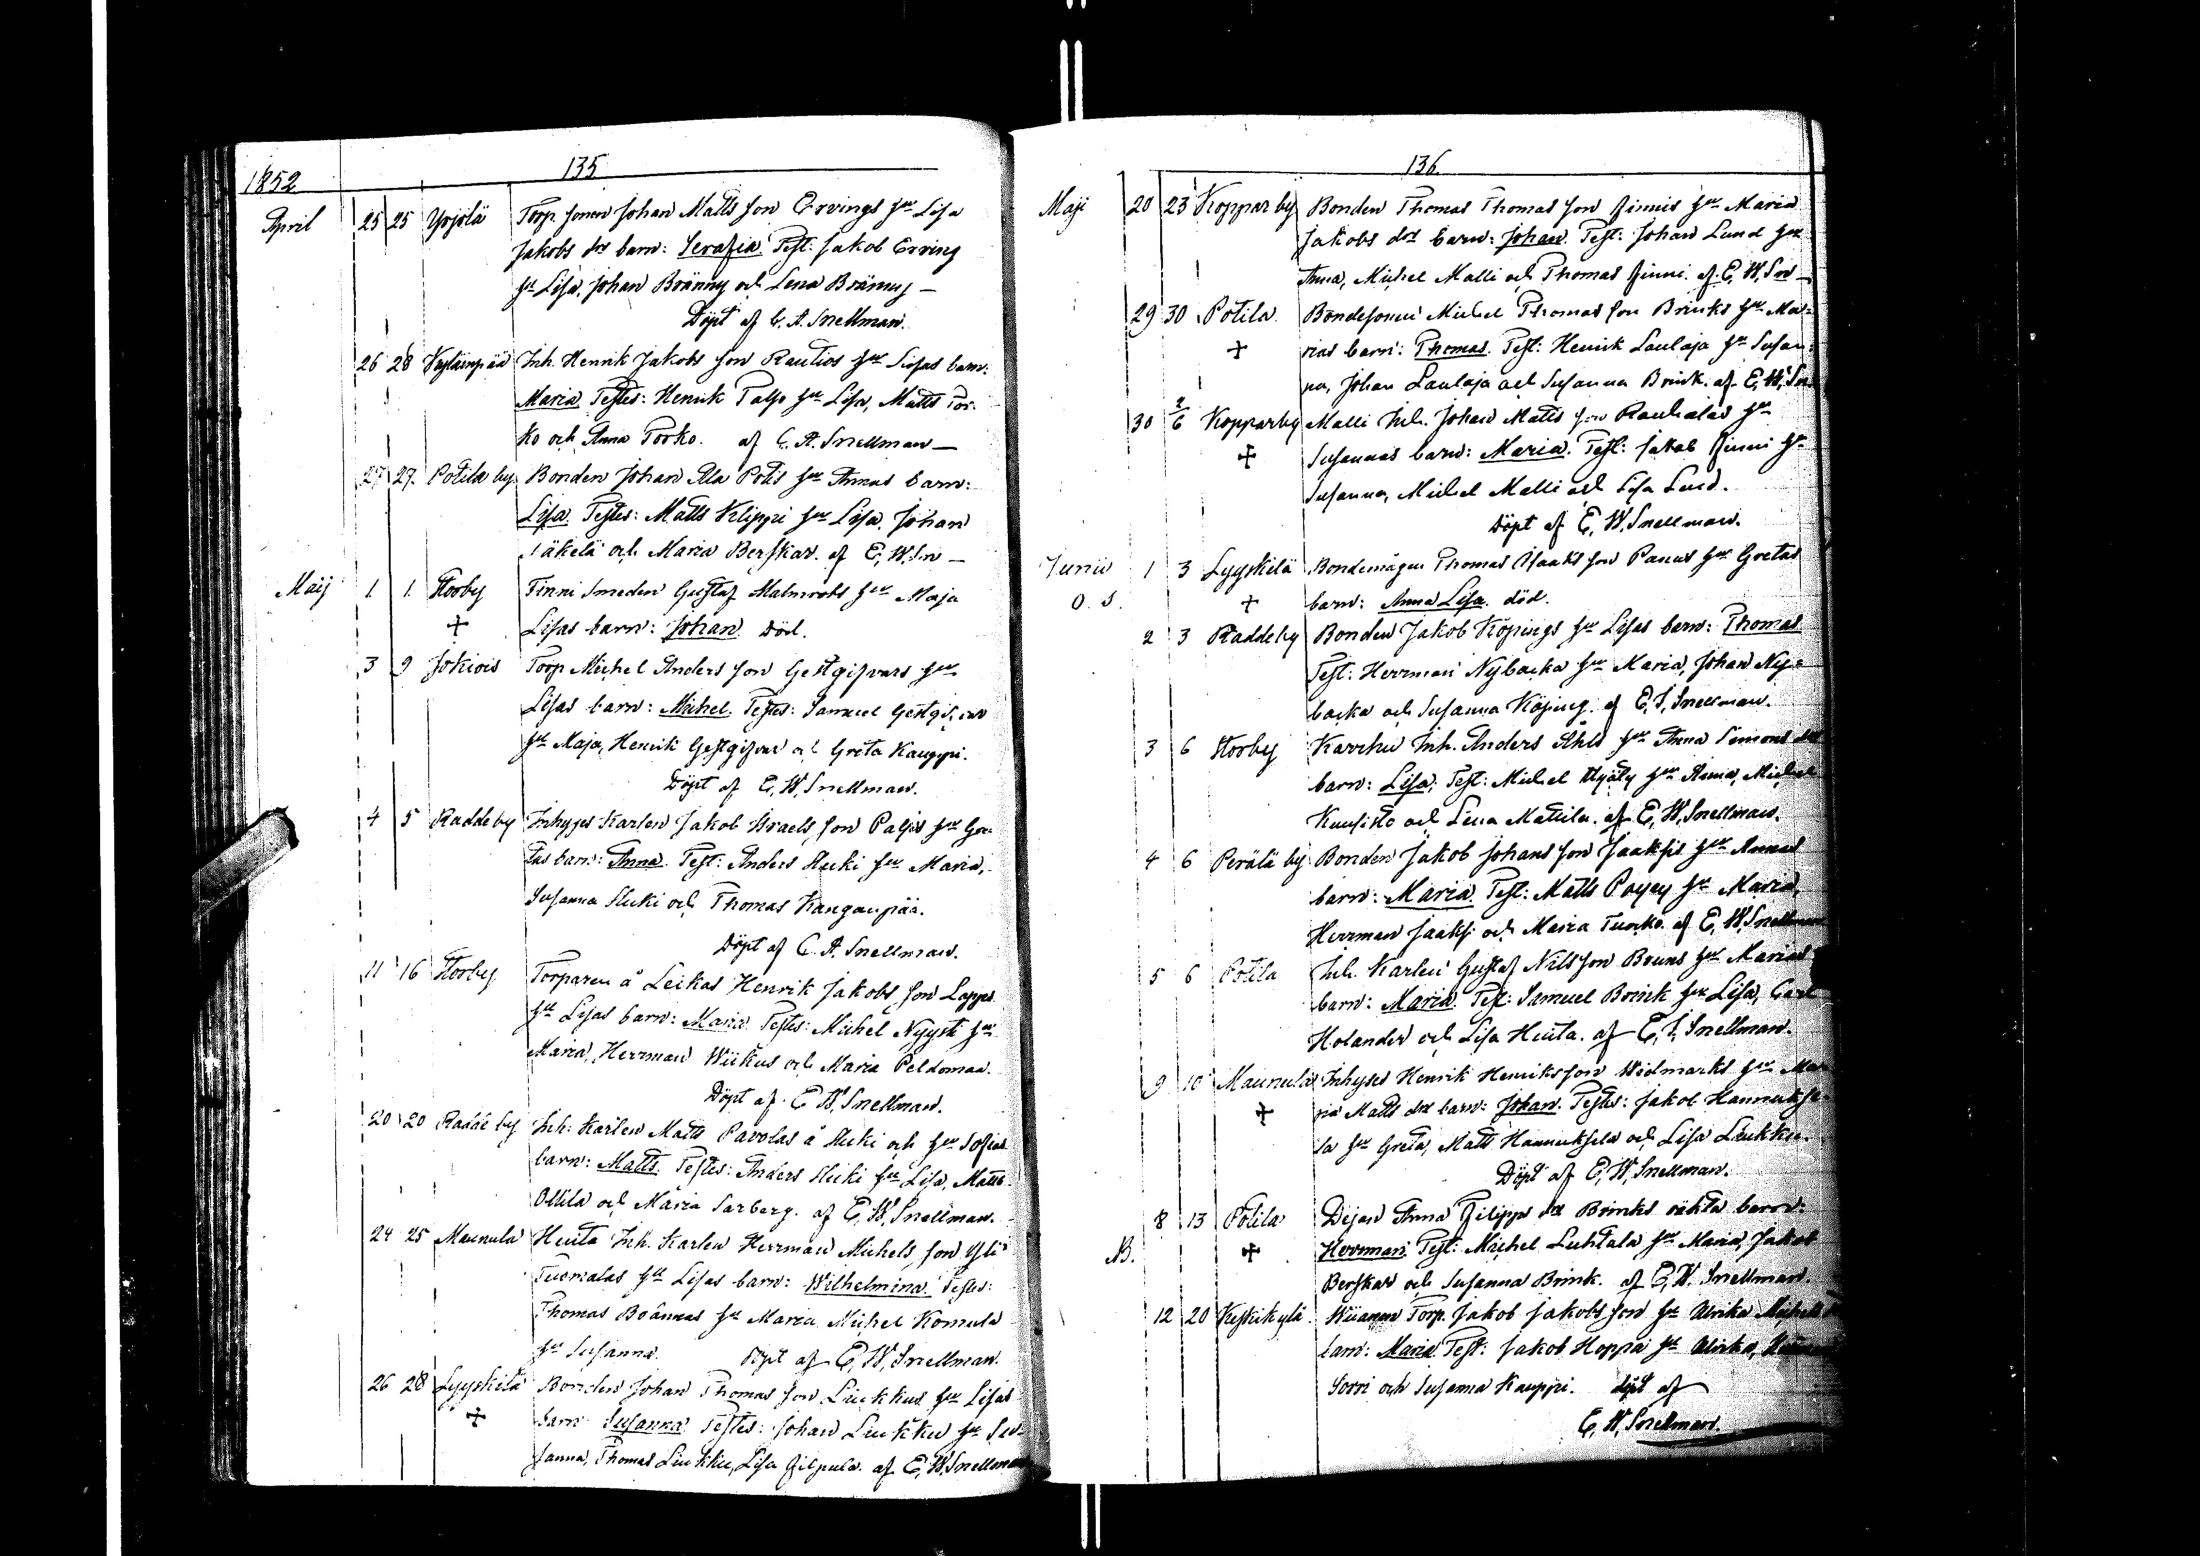 135
1852
April 25 25 Yrjölä Torp. sonen Johan Matts son Ervings hu Lisa
Jakobs dr barn: Serafia. Test: Jakob Erving
hu Lisa, Johan Bränny och Lena Bränny —
Döpt af C. A. Snellman.
26 28 Inh. Henrik Jakobs son Rautios hu Lisas barn:
Maria Testes: Henrik Palso hu Lisa, Matts Tor-
ko och Anna Torko. af C. A. Snellman —
27 27. Potila by Bonden Johan Ala Potis hu Annas barn:
Lisa. Testes: Matts Klippi hu Lisa, Johan
Jäkelä och Maria Berskar. af E. W. Sn —
Maij 1 1. Storby Finni Smeden Gustaf Malmrots hu Maja
+ Lisas barn: Johan. Död.
3 9 Jokiois Torp. Michel Anders son Gestgifvars hu
Lisas barn: Michel. Testes: Samuel Gestgifvar
hu Maja, Henrik Gestgifvar och Greta Kauppi.
Döpt af E. W. Snellman.
4 5 Raddeby Inhyses Karlen Jakob Israels son Palsis hu Gre-
tas barn: Anna. Test: Anders Sluki hu Maria,
Susanna Sluki och Thomas Kangaspää.
Döpt af C. A. Snellman.
11 16 Storby Torparen å Leikas Henrik Jakobs son Lappis
hu Lisas barn: Maria Testes: Michel Nyysti hu
Maria, Herrman Wiikus och Maria Peldoman.
Döpt af E. W. Snellman.
20 20 Radde by Inh: Karlen Matts Pavolas å Sluki och hu Sofias
barn: Matts. Testes: Anders Sluki hu Lisa, Matts
Ollila och Maria Sarberg. af E. W. Snellman.
24 25 Maunula Heuta Inh. Karlen Herrman Michels son Yli
Tuomalas hu Lisas barn: Wilhelmina. Testes:
Thomas Boännas hu Maria Michel Komula
hu Susanna. Döpt af E. W. Snellman.
26 28 Lyyskilä Bonden Johan Thomas son Liukkus hu Lisas
+ barn Susanna Testes: Johan Liukku hu Su-
sanna, Thomas Liukku, Lisa Filpula. af E. W. Snellman
136
Maji 20 23 Koppar by Bonden Thomas Thomas son Finnis hu Maria
Jakobs dr barn: Johan. Test: Johan Lund hu
Anna, Michel Malli och Thomas Finni. af E. W. Sn —
29 30 Potila Bondesonen Michel Thomas son Brinks hu Ma-
+ rias barn: Thomas. Test: Henrik Laulaja hu Susan-
na, Johan Laulaja och Susanna Brink. af E. W. Sn.
30 2/6 Kopparby Malli Inh. Johan Matts son Rauhalas hu
+ Susannas barn: Maria. Test: Jakob Finni hu
Susanna, Michel Malli och Lisa Lund.
Döpt af E. W. Snellman.
Junii 1 3 Lyyskilä Bondemågen Thomas Isaaks son Panus hu Gretas
O. S. + barn: Anna Lisa. död.
2 3 Raddeby Bonden Jakob Köpings hu Lisas barn: Thomas
Test: Herrman Nybacka hu Maria, Johan Ny-
backa och Susanna Köping. af E. J. Snellman.
3 6 Storby Karchu Inh. Anders Åhls hu Anna Simons dr
barn: Lisa, Test: Michel hu Anna, Michel
Kuusisto och Lena Mattila. af E. W. Snellman.
4 6 Perälä by Bonden Jakob Johans son Jaaksis hu Annas
barn: Maria. Test: Matts Poyey hu Maria,
Herrman Jaaksi och Maria Tuorko. af E. W. Snellman
5 6 Potila Inh. Karlen Gustaf Nils son Bruns hu Marias
barn: Maria. Test: Samuel Brink hu Lisa, Carl
Holander och Lisa Heuta. af E. J. Snellman.
9 10 Maunula Inhyses Henrik Henriks son Widmarks hu Ma-
+ ria Matts dr barn: Johan. Testes: Jakob Hannukse-
la hu Greta, Matts Hannuksela och Lisa Liukku.
Döpt af E. W. Snellman.
8 13 Potila Dejan Anna Filipps dr Brinks oäkta barn:
NB. + Herrman. Test: Michel Luhtala hu Maria, Jakob
Berskar och Susanna Brink. af E. W. Snellman.
12 20 Keskikylä Torp. Jakob Jakobs son hu Ulrika Michels
barn: Maria Test: Jakob Hoppa hu Ulrika,
Sorri och Susanna Kauppi. döpt af
E. W. Snellman.